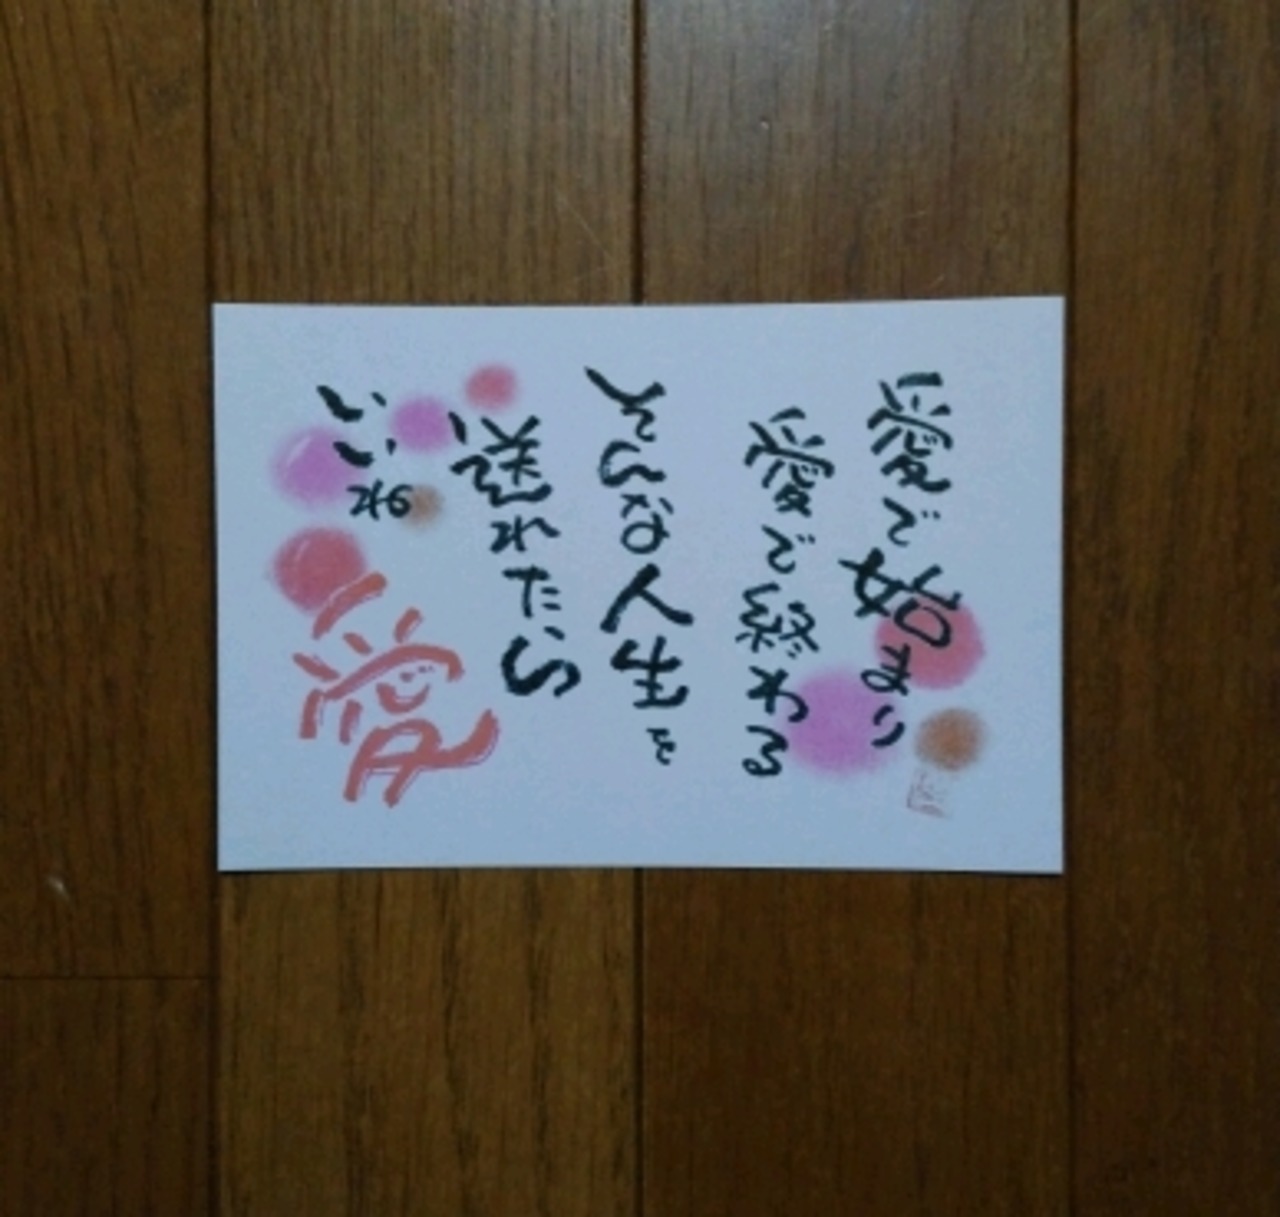 愛で始まり
愛で終わる
そんな人生を
送れたら
いいね
愛